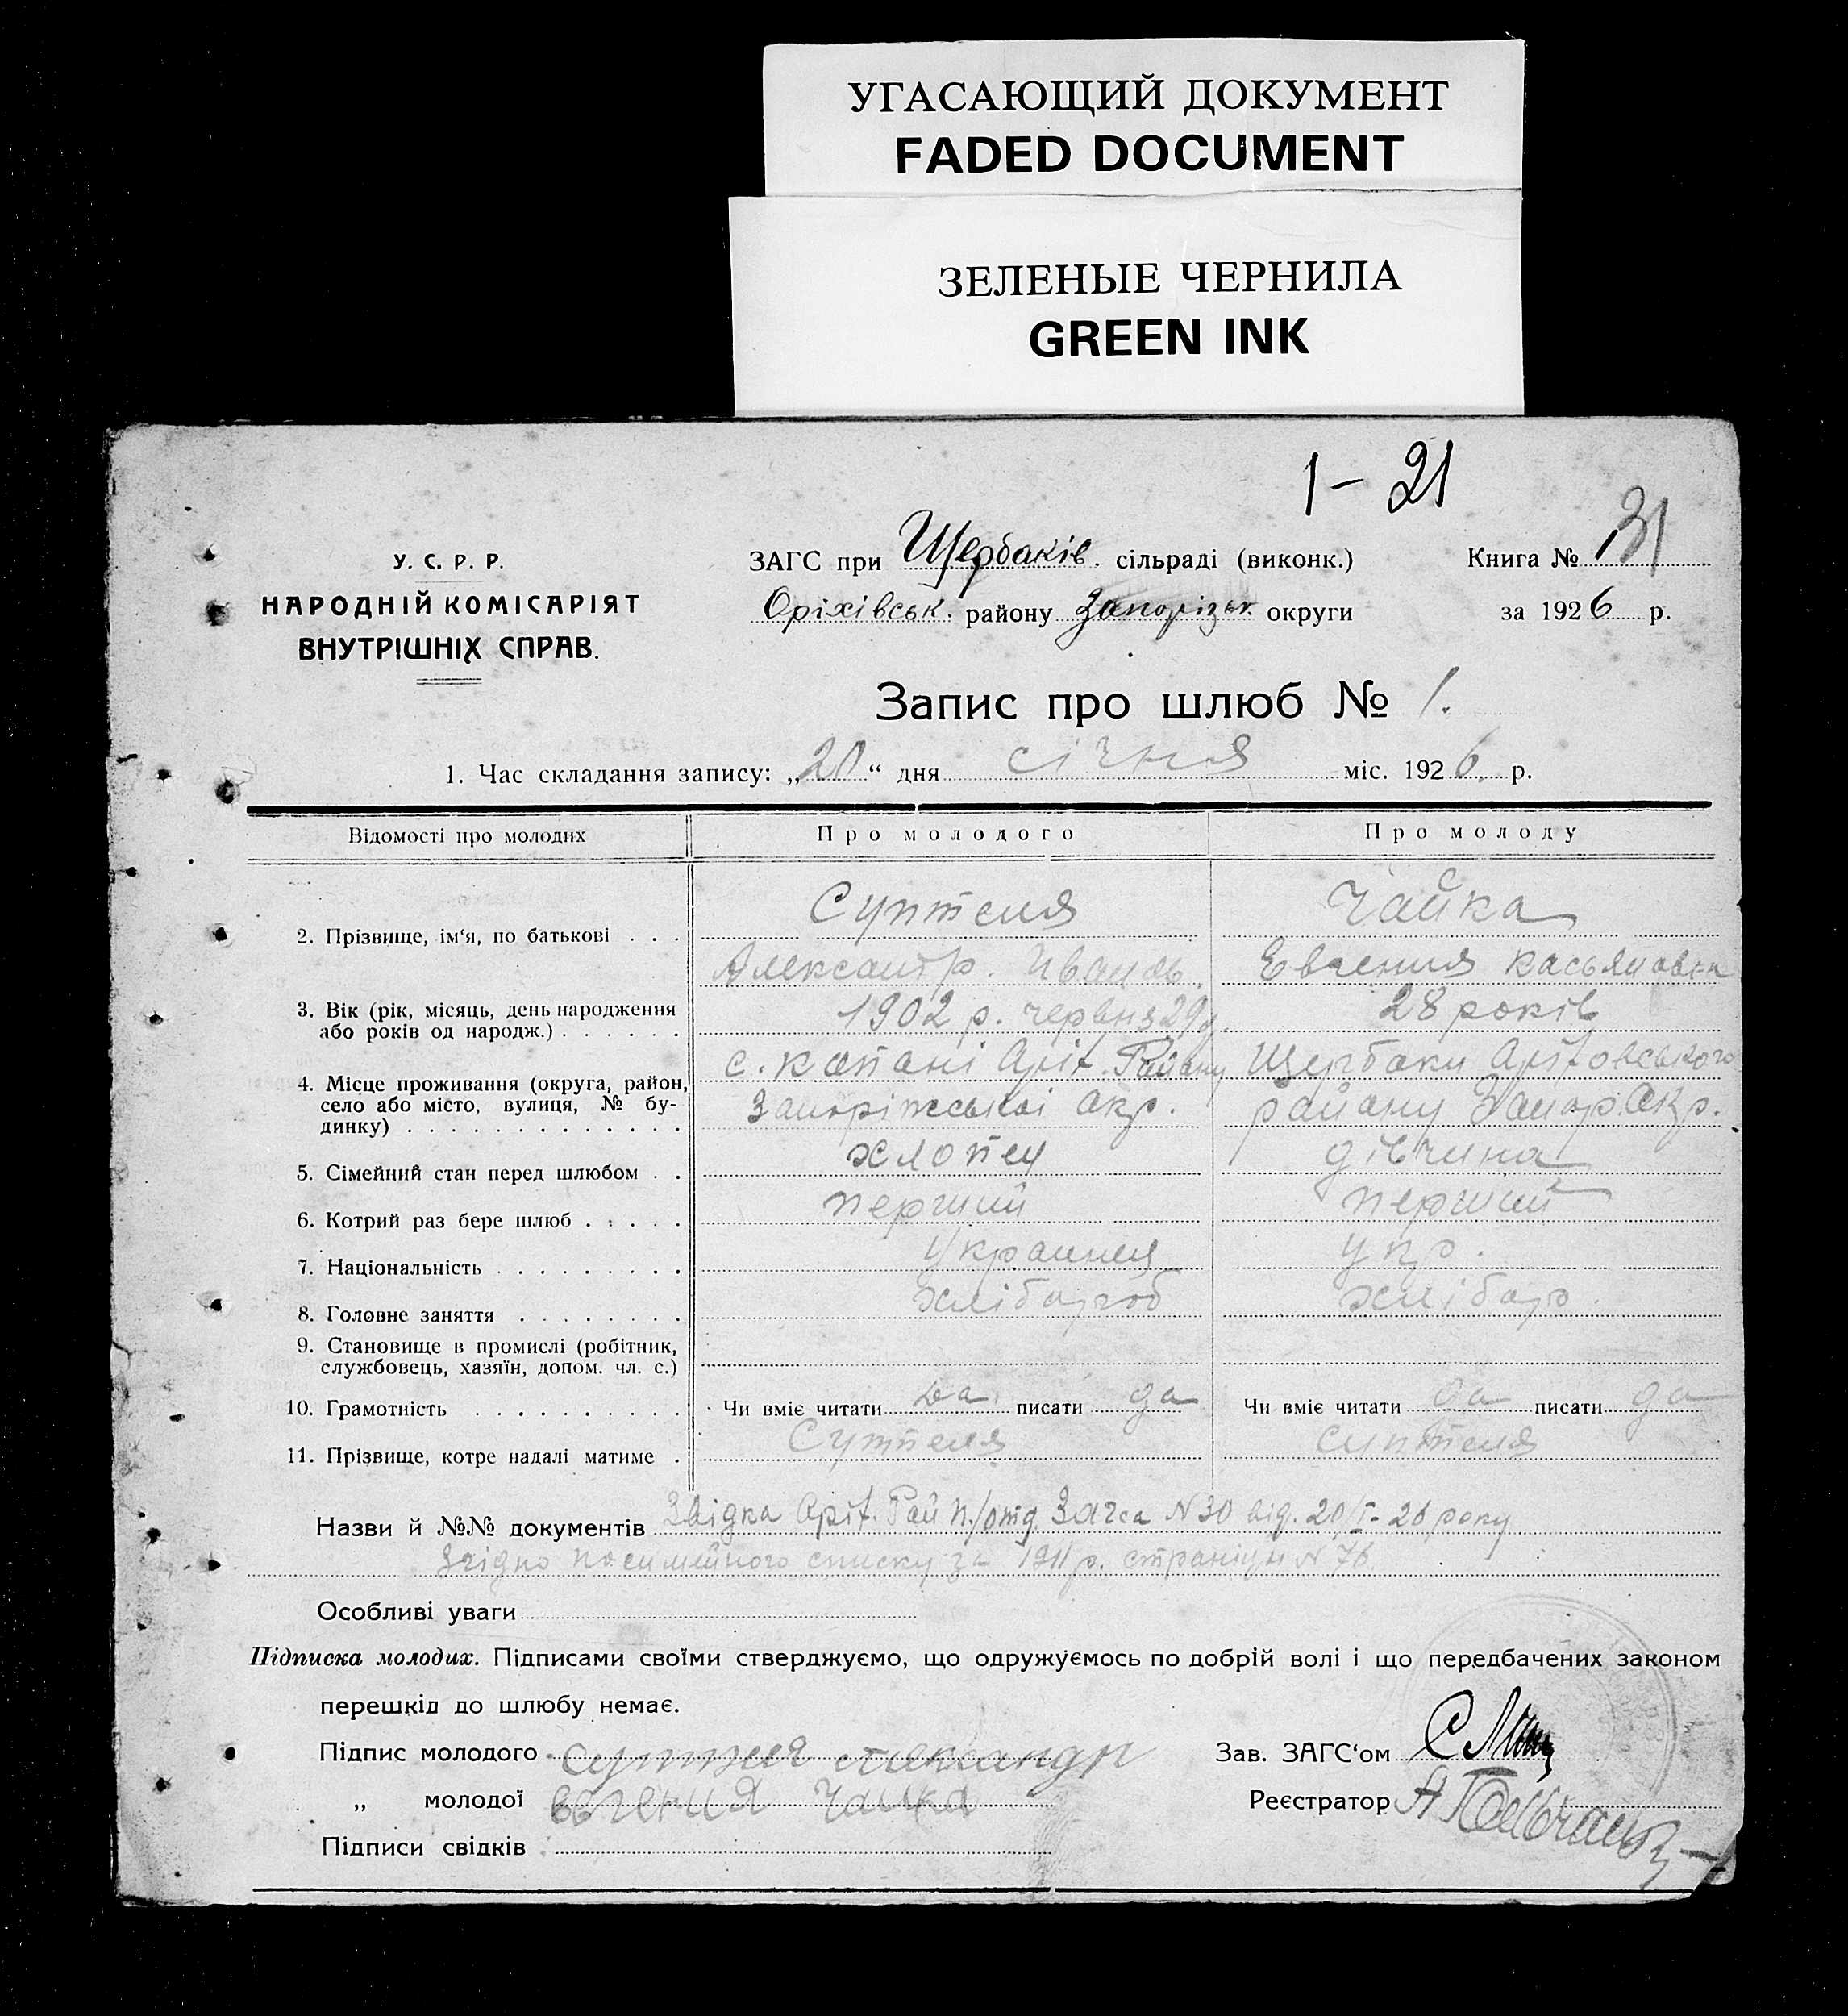 УГАСАЮЩИЙ ДОКУМЕНТ
FADED DOCUMENT
ЗЕЛЕНЫЕ ЧЕРНИЛА
GREEN INK
1 - 21
У. С. Р. Р.
НАРОДНІЙ КОМІСАРІЯТ
ВНУТРІШНІХ СПРАВ.
ЗАГС при Щербаків. сільраді (виконк.)
Оріхівськ. району Запорізьк. округи
Книга № 31
за 1926 р.
Запис про шлюб № 1.
1. Час складання запису: „20“ дня січня міс. 1926 р.
Відомості про молодих Про молодого Про молоду
2. Прізвище, ім‘я, по батькові . . . Суптеля Чайка
Александр. Иванов. Евгения Касьяновн
3. Вік (рік, місяць, день народження або років од народж.) . . . . . . 1902 р. червня 29 д 28 років
4. Місце проживання (округа, район, село або місто, вулиця, № будинку) . . . . . . . . . . . . . с. Копані Оріх. Району Щербаки Оріховського
Запоріжської окр. району Запор. Окр.
5. Сімейний стан перед шлюбом . . хлопец дівчина
6. Котрий раз бере шлюб . . . . . перший перший
7. Національність . . . . . . . . . Украинец укр.
8. Головне заняття . . . . . . . . хлібороб хлібор.
9. Становище в промислі (робітник, службовець, хазяїн, допом. чл. с.)
10. Грамотність . . . . . . . . . . Чи вміє читати да писати да Чи вміє читати да писати да
11. Прізвище, котре надалі матиме . Суптеля Суптеля
Назви й №№ документів Звідка Оріх. Рай п/отд Загса N 30 від. 20/I - 26 року
Згідно посимейного списку за 1911 р. страніци N 76.
Особливі уваги
Підписка молодих. Підписами своїми стверджуємо, що одружуємось по добрій волі і що передбачених законом
перешкід до шлюбу немає.
Підпис молодого Суптеля Александр
„ молодої Евгения Чайка
Підписи свідків
Зав. ЗАГС‘ом
Реєстратор